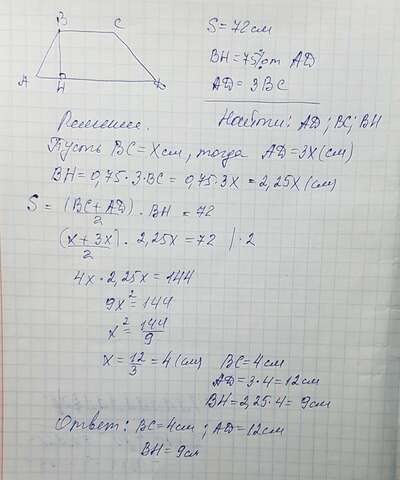 B C
A H D
S = 72см
BH = 75% от AD
AD = 3BC
Решение. Найти: AD; BC; BH
Пусть BC = x см, тогда AD = 3x (см)
BH = 0,75 · 3 · BC = 0,75 · 3x = 2,25x (см)
S = (BC + AD)/2 · BH = 72
(x + 3x)/2 · 2,25x = 72 | · 2
4x · 2,25x = 144
9x² = 144
x² = 144/9
x = 12/3 = 4 (см) BC = 4см
AD = 3 · 4 = 12см
BH = 2,25 · 4 = 9см
Ответ: BC = 4см ; AD = 12см
BH = 9см